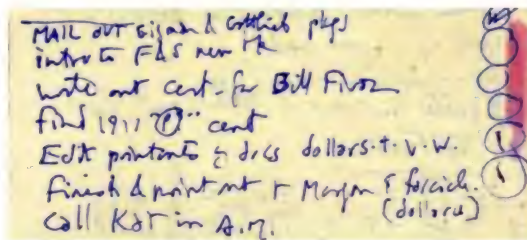 MAIL OUT Sigman & Gottlieb pkgs
intro to F&S new
write out cert. for Bill
find 1911 Ⓓ cent
Edit printouts docs dollars + V.W.
Finish & print out + Morgan
(dollars)
Call Kat in A.M.